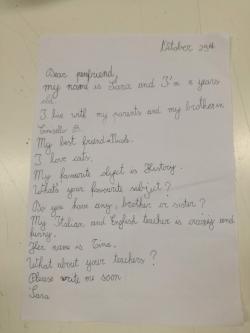 October 25th
Dear penfriend,
my name is Sara and I'm 11 years
old.
I live with my parents and my brother in
My best friend is
I love cats.
My favourite object is History.
What's your favourite subject?
Do you have any, brother or sister?
My Italian and English teacher is crazy and
funny.
Her name is Tina.
What about your teachers?
Please write me soon
Sara